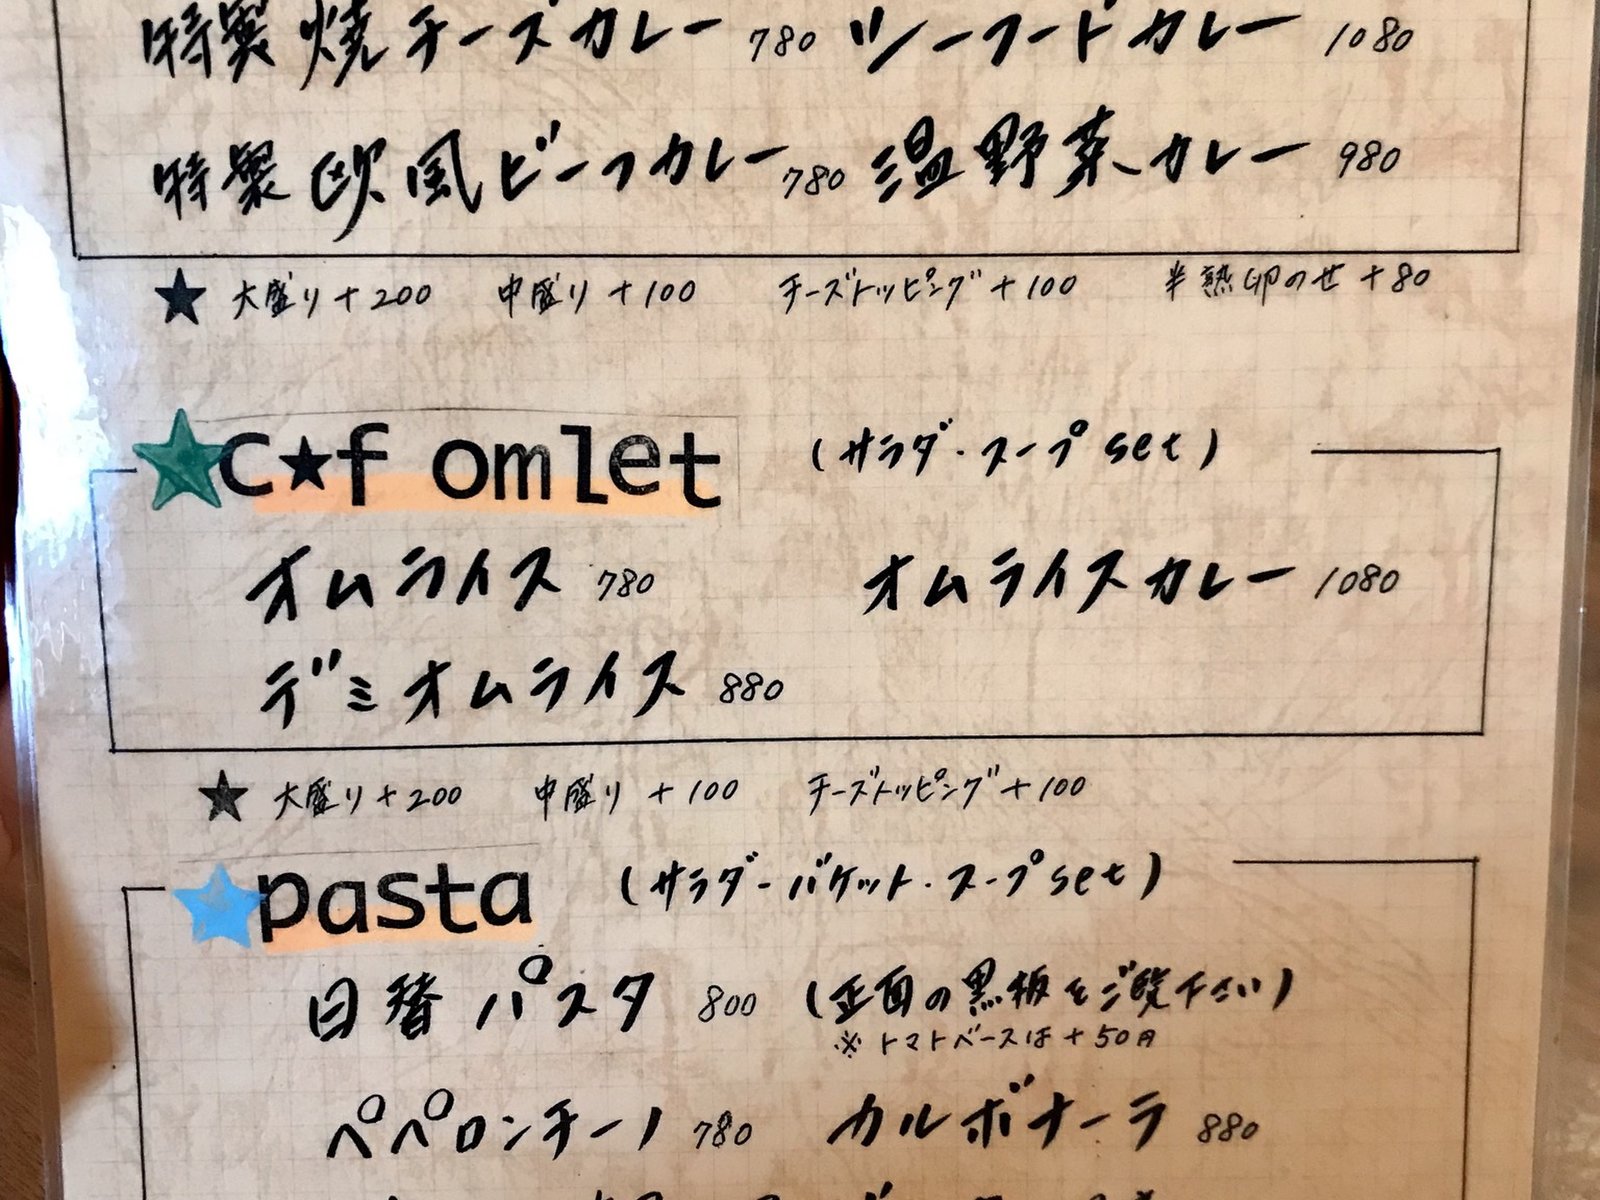 特製焼チーズカレー 780 シーフードカレー 1080
特製欧風ビーフカレー 780 温野菜カレー 980
★ 大盛り+200 中盛り+100 チーズトッピング+100 半熟卵のせ+80
★c★f omlet (サラダ・スープset)
オムライス 780 オムライスカレー 1080
デミオムライス 880
★ 大盛り+200 中盛り+100 チーズトッピング+100
★pasta (サラダ・バケット・スープset)
日替パスタ 800 (正面の黒板をご覧下さい)
※トマトベースは+50円
ペペロンチーノ 780 カルボナーラ 880